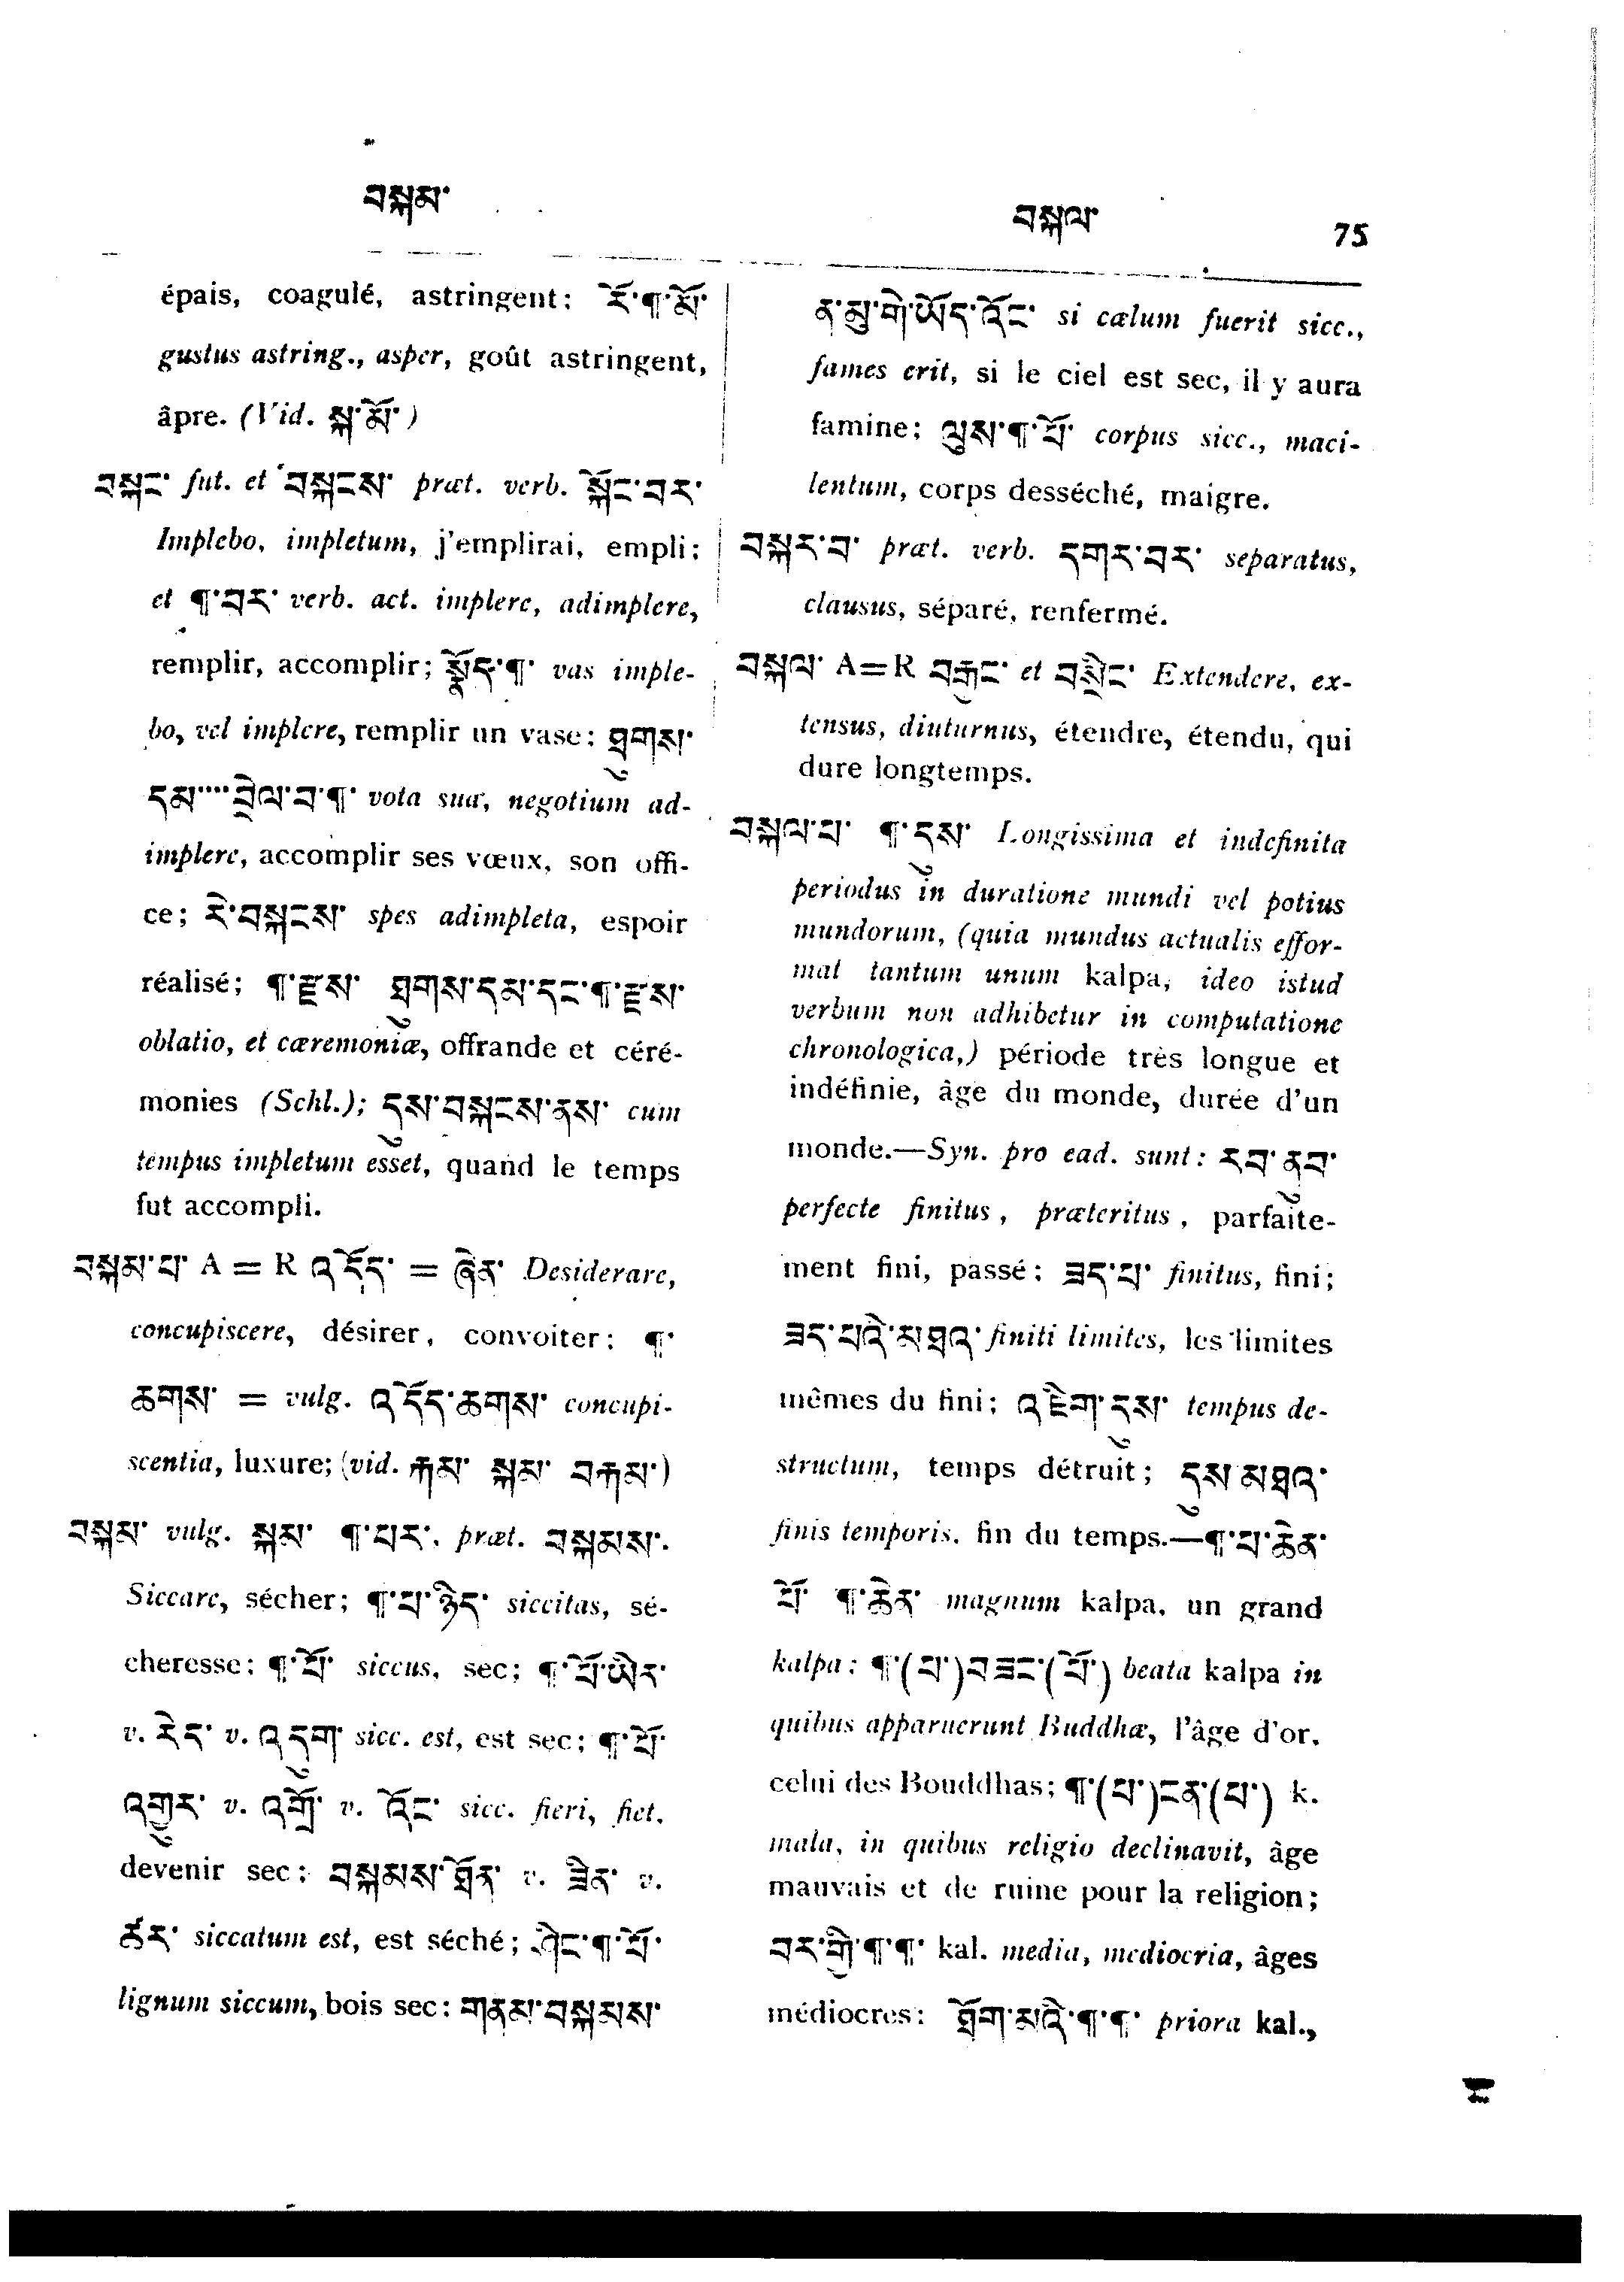 བསྐམ་
བསྐལ་
75
épais, coagulé, astringent; རོ་¶་མོ་
gustus astring., asper, goût astringent,
âpre. (Vid. སྐ་མོ་)
བསྐང་ fut. et བསྐངས་ præt. verb. སྐོང་བར་
Implebo, impletum, j'emplirai, empli;
et ¶་བར་ verb. act. implere, adimplere,
remplir, accomplir; སྣོད་¶་ vas imple-
bo, vel implere, remplir un vase; ཐུགས་
དམ་····བྲེལ་བ་¶་ vota sua, negotium ad-
implere, accomplir ses vœux, son offi-
ce; རེ་བསྐངས་ spes adimpleta, espoir
réalisé; ¶་རྫས་ ཐུགས་དམ་དང་¶་རྫས་
oblatio, et cæremoniæ, offrande et céré-
monies (Schl.); དུས་བསྐངས་ནས་ cum
tempus impletum esset, quand le temps
fut accompli.
བསྐམ་པ་ A = R འདོད་ = ཞེན་ Desiderare,
concupiscere, désirer, convoiter; ¶་
ཆགས་ = vulg. འདོད་ཆགས་ concupi-
scentia, luxure; (vid. རྐམ་ སྐམ་ བརྐམ་)
བསྐམ་ vulg. སྐམ་ ¶་པར་, præt. བསྐམས་.
Siccare, sécher; ¶་པ་ཉིད་ siccitas, sé-
cheresse; ¶་པོ་ siccus, sec; ¶་པོ་ཡིན་
v. རེད་ v. འདུག་ sicc. est, est sec; ¶་པོ་
འགྱུར་ v. འགྲོ་ v. འོང་ sicc. fieri, fiet,
devenir sec; བསྐམས་ཐོན་ v. ཟིན་ v.
ཚར་ siccatum est, est séché; ཤིང་¶་པོ་
lignum siccum, bois sec; གནམ་བསྐམས་
ན་མུ་གེ་ཡོད་འོང་ si cælum fuerit sicc.,
fames erit, si le ciel est sec, il y aura
famine; ལུས་¶་པོ་ corpus sicc., maci-
lentum, corps desséché, maigre.
བསྐར་བ་ præt. verb. དགར་བར་ separatus,
clausus, séparé, renfermé.
བསྐལ་ A=R བརྐྱང་ et བསྲིང་ Extendere, ex-
tensus, diuturnus, étendre, étendu, qui
dure longtemps.
བསྐལ་པ་ ¶་དུས་ Longissima et indefinita
periodus in duratione mundi vel potius
mundorum, (quia mundus actualis effor-
mat tantum unum kalpa, ideo istud
verbum non adhibetur in computatione
chronologica,) période très longue et
indéfinie, âge du monde, durée d'un
monde.—Syn. pro ead. sunt: རབ་ནུབ་
perfecte finitus, præteritus, parfaite-
ment fini, passé; ཟད་པ་ finitus, fini;
ཟད་པའི་མཐའ་ finiti limites, les limites
mêmes du fini; འཇིག་དུས་ tempus de-
structum, temps détruit; དུས་མཐའ་
finis temporis, fin du temps.—¶་པ་ཆེན་
པོ་ ¶་ཆེན་ magnum kalpa, un grand
kalpa; ¶་(པ་)བཟང་(པོ་) beata kalpa in
quibus apparuerunt Buddhæ, l'âge d'or,
celui des Bouddhas; ¶་(པ་)ངན་(པ་) k.
mala, in quibus religio declinavit, âge
mauvais et de ruine pour la religion;
བར་གྱི་¶་¶་ kal. media, mediocria, âges
médiocres; ཐོག་མའི་¶་¶་ priora kal.,